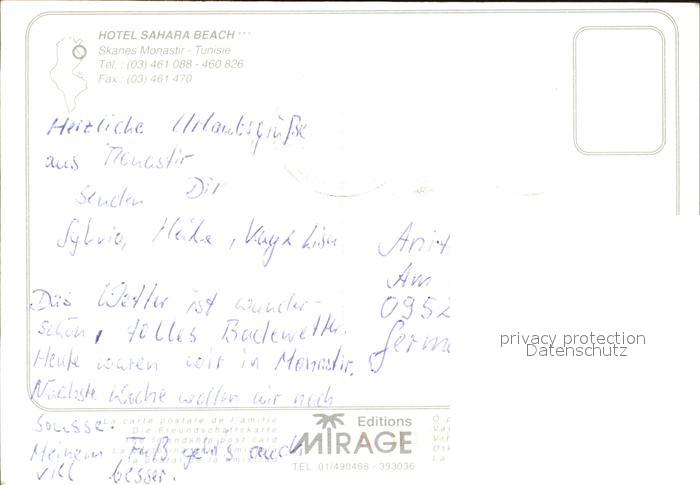 HOTEL SAHARA BEACH ***
Skanes Monastir - Tunisie
Tél. : (03) 461 088 - 460 826
Fax : (03) 461 470
Herzliche Urlaubsgrüße
aus Monastir
senden Dir
Sylvia, Heike,
Das Wetter ist wunder-
schön, tolles Badewetter.
Heute waren wir in Monastir.
Nächste Woche wollen wir nach
Sousse.
Meinem Fuß geht's auch
viel besser.
Anit
Am
0952
Germ
privacy protection
Datenschutz
La carte postale de l'amitie
Die Freundschaftskarte
The friendship post card
Editions
MIRAGE
TEL. 01/490468 - 393036